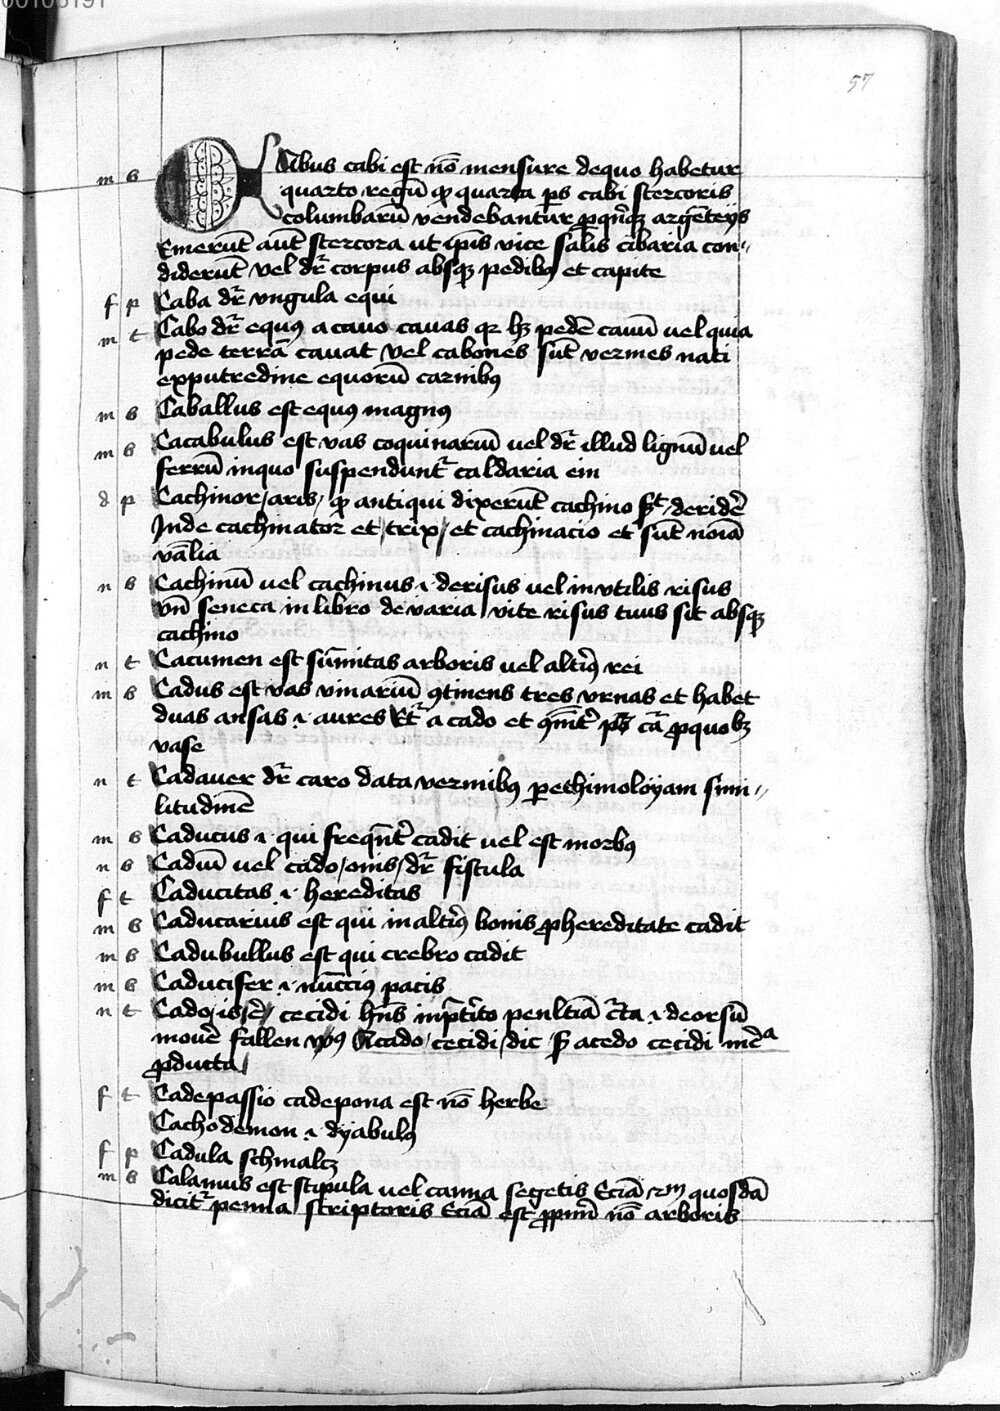 57
m b CAbus cabi est nō mensure dequo habetur
quarto regū ꝙ quarta ps cabi stercoris
columbarū vendebantur ꝓ qnqꝫ argēteijs
Emerūt aūt stercora ut ipīs vice salis cibaria con
diderūt vel dr̄ corpus absqꝫ pedibꝰ et capite
f p Caba dr̄ vngula equi
m t Cabo dr̄ equꝰ a cauo cauas qꝛ hꝫ pedē cauū uel quia
pede terrā cauat vel cabones sūt vermes nati
exputredine equorū carnibꝰ
m b Caballus est equꝰ magnꝰ
m b Cacabulus est vas coquinariū uel dr̄ illud lignū uel
ferrū inquo suspendunt᷑ caldaria
d p Cachinor / aris / ꝙ antiqui dixerūt cachino deridē
Inde cachinator et / trix / et cachinacio et sūt noīa
v̄alia
n b Cachinū vel cachinus .i. derisus vel invtilis risus
vn̄ seneca in libro de varia vite risus tuus sit absqꝫ
cachino
n t Cacumen est sūmitas arboris vel altīꝰ rei
m b Cadus est vas vinariū ꝯtinens tres vrnas et habet
duas ansas .i. aures Et᷑ a cado et ꝓquobꝫ
vase
n t Cadauer dr̄ caro data vermibꝰ per ethimoloyam simi
litudinē
m b Caducus .i. qui freqn̄t᷑ cadit vel est morbꝰ
n b Cadiū vel cado / onis / dr̄ fistula
f t Caducitas .i. hereditas
m b Caducarius est qui in altīꝰ bonis ꝓ hereditate cadit
m b Cadubullus est qui crebro cadit
m b Caducifer .i. nūcciꝰ pacis
n t Cado / is / cecidi hn̄s inp̄t̄ito penltiā .i. deorsū
mouē fallen Acado / cecidi / dic acedo cecidi
ꝓducta /
f t Cadepassio cadepona est nō herbe
Cachodemon .i. dyabulꝰ
f p Cadula schmalcz
m b Calamus est stipula uel canna segetis Eciā quosdā
dicit᷑ penna scriptoris Eciā est nō arboris